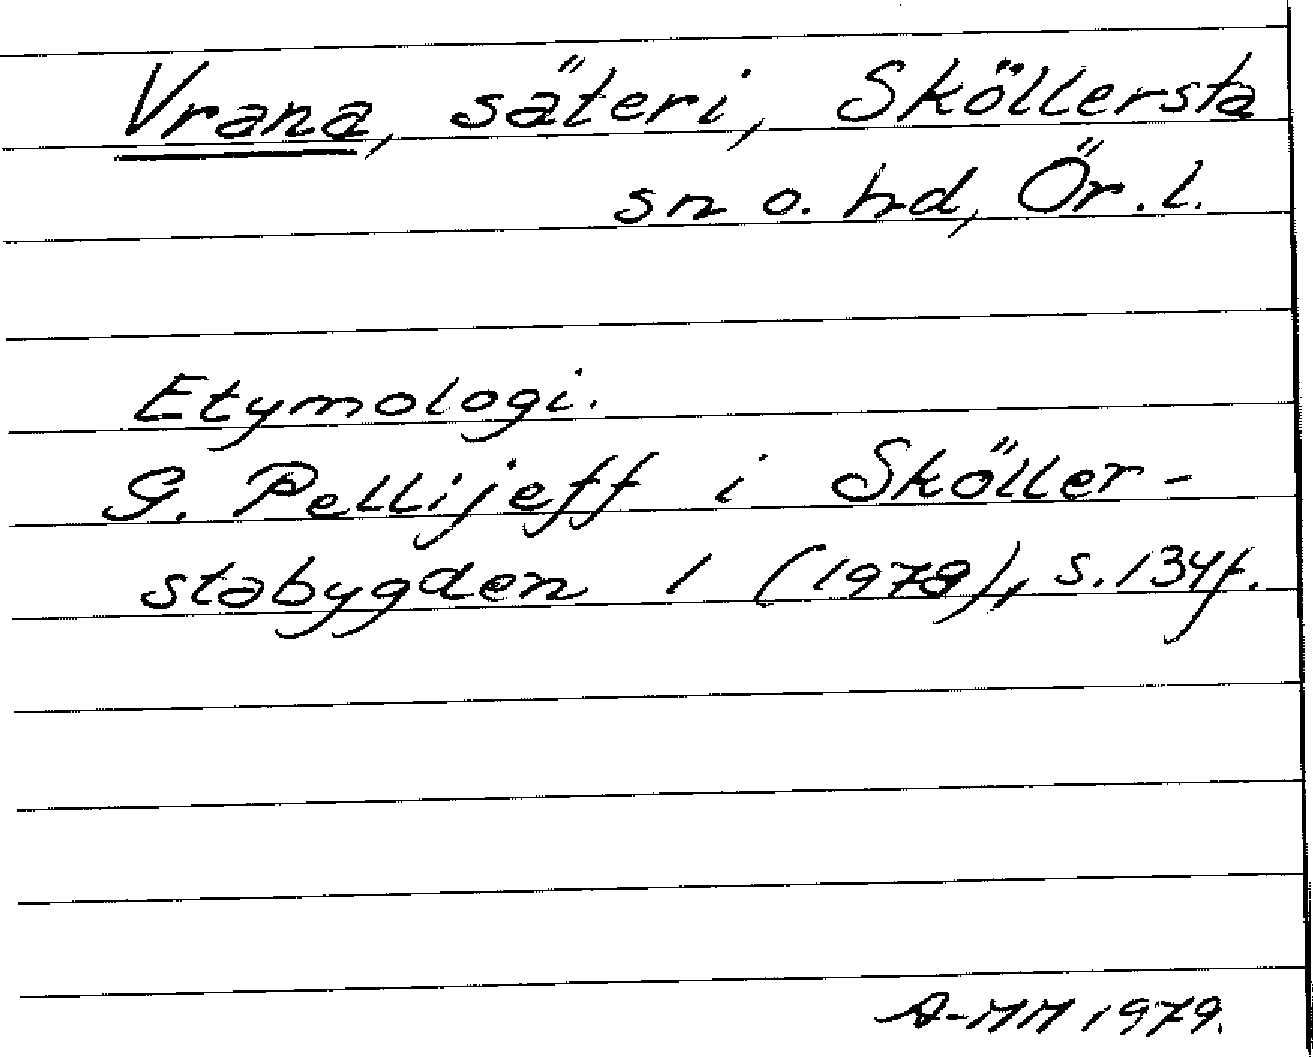 Vrana, säteri, Sköllersta
sn o. hd, Ör. l.
Etymologi.
G. Pellijeff i Sköller-
stabygden 1 (1978), s. 134f.
A-MM 1979.